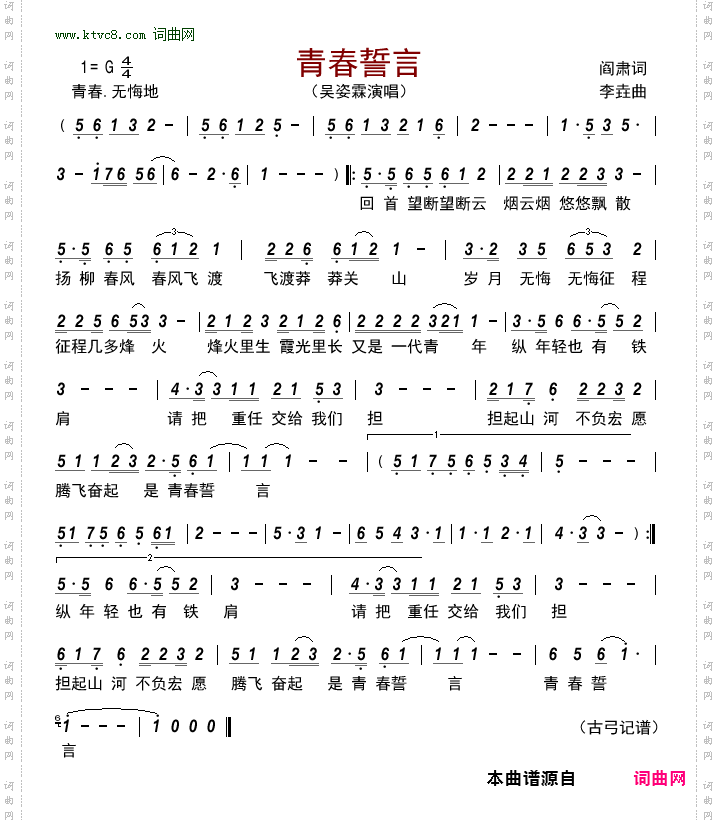 www.ktvc8.com 词曲网
青春誓言
1= G 4/4
阎肃词
青春.无悔地
（吴姿霖演唱）
李垚曲
( 5 6 1 3 2 – | 5 6 1 2 5 – | 5 6 1 3 2 1 6 | 2 – – – | 1 · 5 3 5 · |
3 – i 7 6 5 6 | 6 – 2 · 6 | 1 – – – ) ‖: 5 · 5 6 5 6 1 2 | 2 2 1 2 2 3 3 – |
回 首 望断望断云 烟云烟 悠悠飘 散
5 · 5 6 5 6 1 2 1 | 2 2 6 6 1 2 1 – | 3 · 2 3 5 6 5 3 2 |
扬 柳 春风 春风飞 渡 飞渡莽 莽关 山 岁 月 无悔 无悔征 程
2 2 5 6 5 3 3 – | 2 1 2 3 2 1 2 6 | 2 2 2 2 3 2 1 1 – | 3 · 5 6 6 · 5 5 2 |
征程几多烽 火 烽火里生 霞光里长 又是 一代青 年 纵 年轻也 有 铁
3 – – – | 4 · 3 3 1 1 2 1 5 3 | 3 – – – | 2 1 7 6 2 2 3 2 |
肩 请 把 重任 交给 我们 担 担起山 河 不负宏 愿
1
5 1 1 2 3 2 · 5 6 1 | 1 1 1 – – | ( 5 1 7 5 6 5 3 4 | 5 – – – |
腾飞奋起 是 青春誓 言
5 1 7 5 6 5 6 1 | 2 – – – | 5 · 3 1 – | 6 5 4 3 · 1 | 1 · 1 2 · 1 | 4 · 3 3 – ) :‖
2
5 · 5 6 6 · 5 5 2 | 3 – – – | 4 · 3 3 1 1 2 1 5 3 | 3 – – – |
纵 年 轻 也 有 铁 肩 请 把 重任 交给 我们 担
6 1 7 6 2 2 3 2 | 5 1 1 2 3 2 · 5 6 1 | 1 1 – – | 6 5 6 1 · |
担起山 河 不负宏 愿 腾飞 奋起 是 青 春誓 言 青 春 誓
1 – – – | 1 0 0 0 ‖
（古弓记谱）
言
本曲谱源自 词曲网